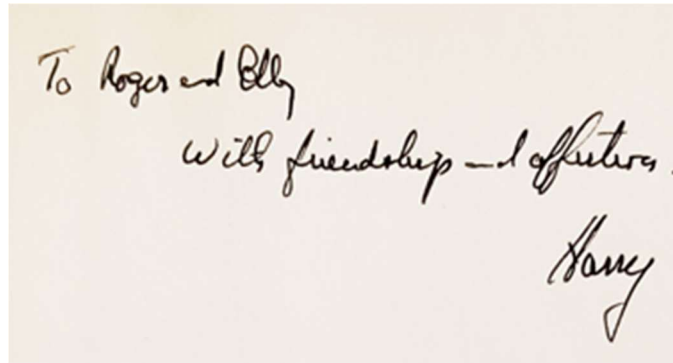 To Roger and Elly
With friendship and affection.
Harry